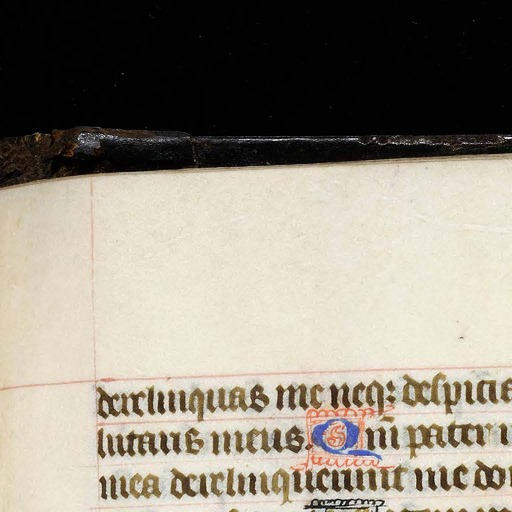 derelinquas me neq; despicia
lutaris meus. Qm̄ pater
mea derelinquerunt me do